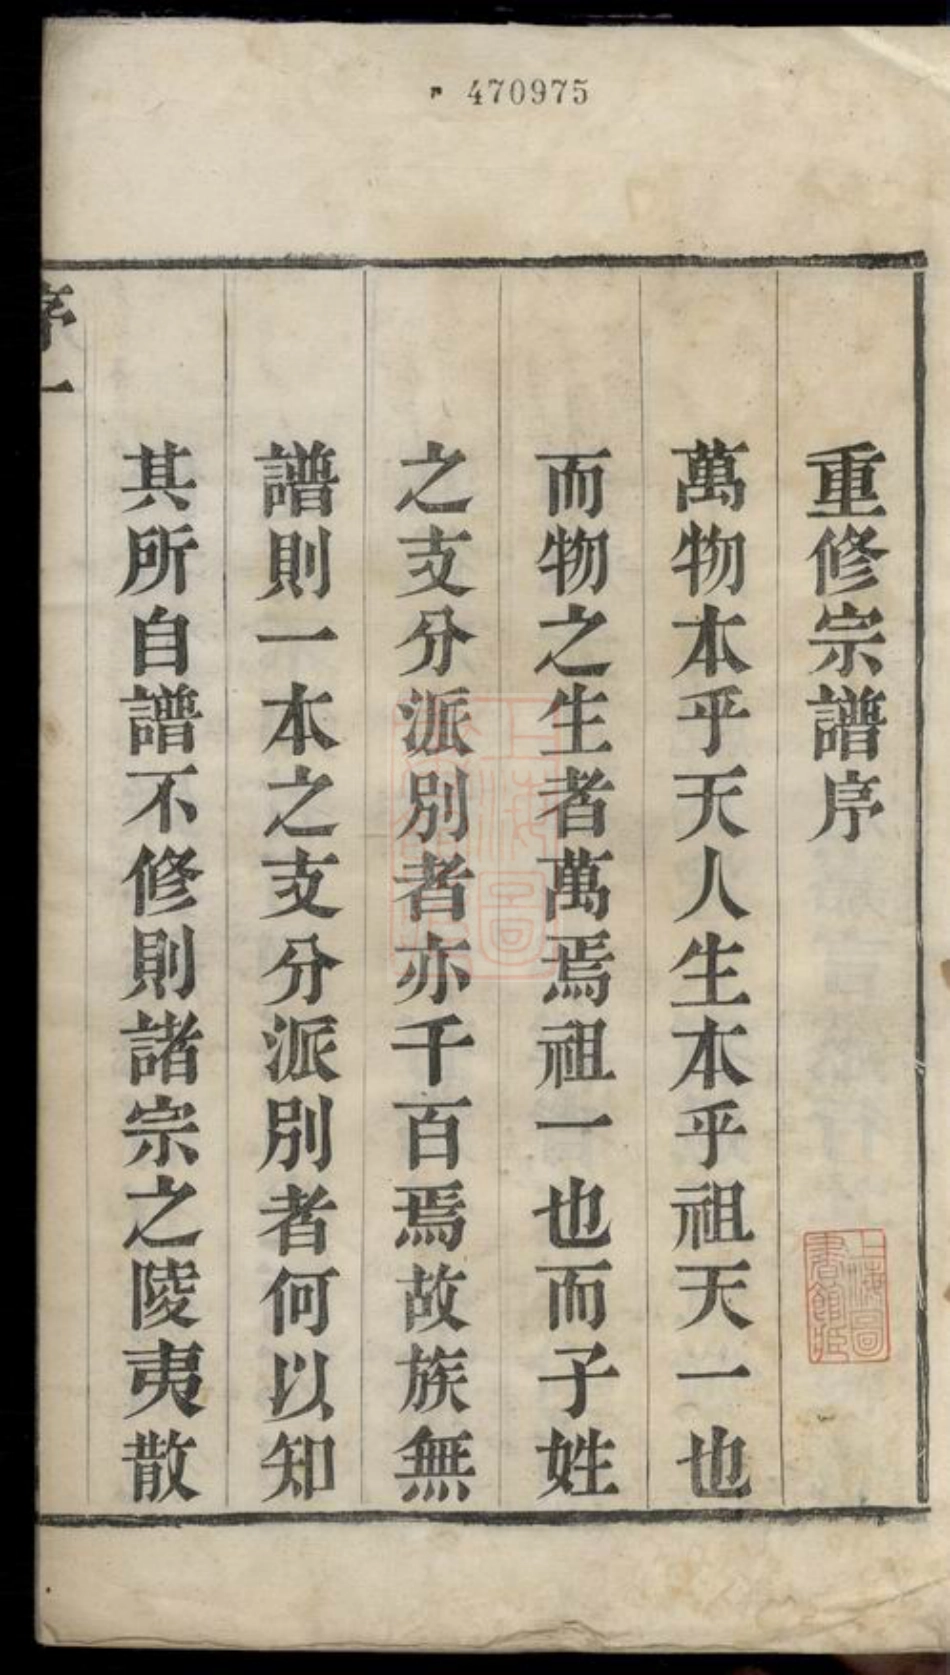 470975
重修宗譜序
萬物本乎天人生本乎祖天一也
而物之生者萬焉祖一也而子姓
之支分派別者亦千百焉故族無
譜則一本之支分派別者何以知
其所自譜不修則諸宗之陵夷散
序一
上海圖
書館藏